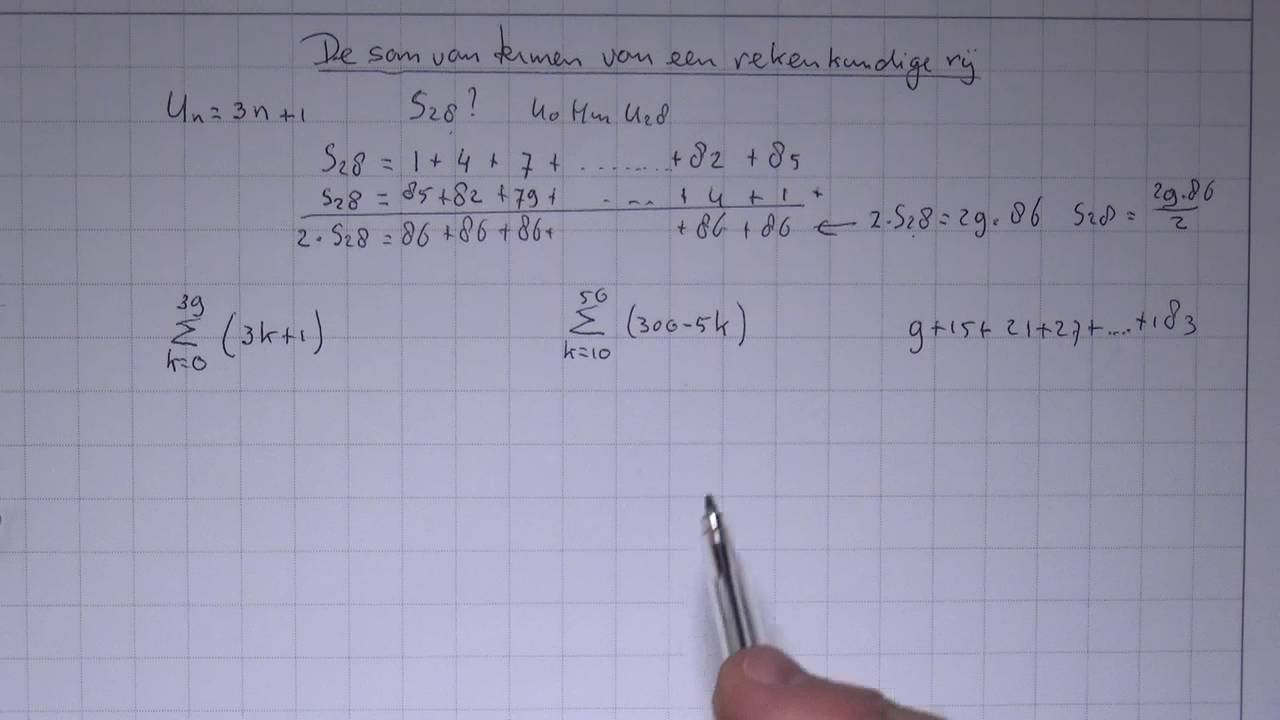 De som van termen van een rekenkundige rij
Uₙ = 3n+1 S₂₈? U₀ t/m U₂₈
S₂₈ = 1 + 4 + 7 + ........ + 82 + 85
S₂₈ = 85 + 82 + 79 + .... + 4 + 1 +
2 · S₂₈ = 86 + 86 + 86 + + 86 + 86 ← 2 · S₂₈ = 29 · 86 S₂₈ = 29·86/2
39 Σ k=0 (3k+1) 56 Σ k=10 (300-5k) 9+15+21+27+....+183